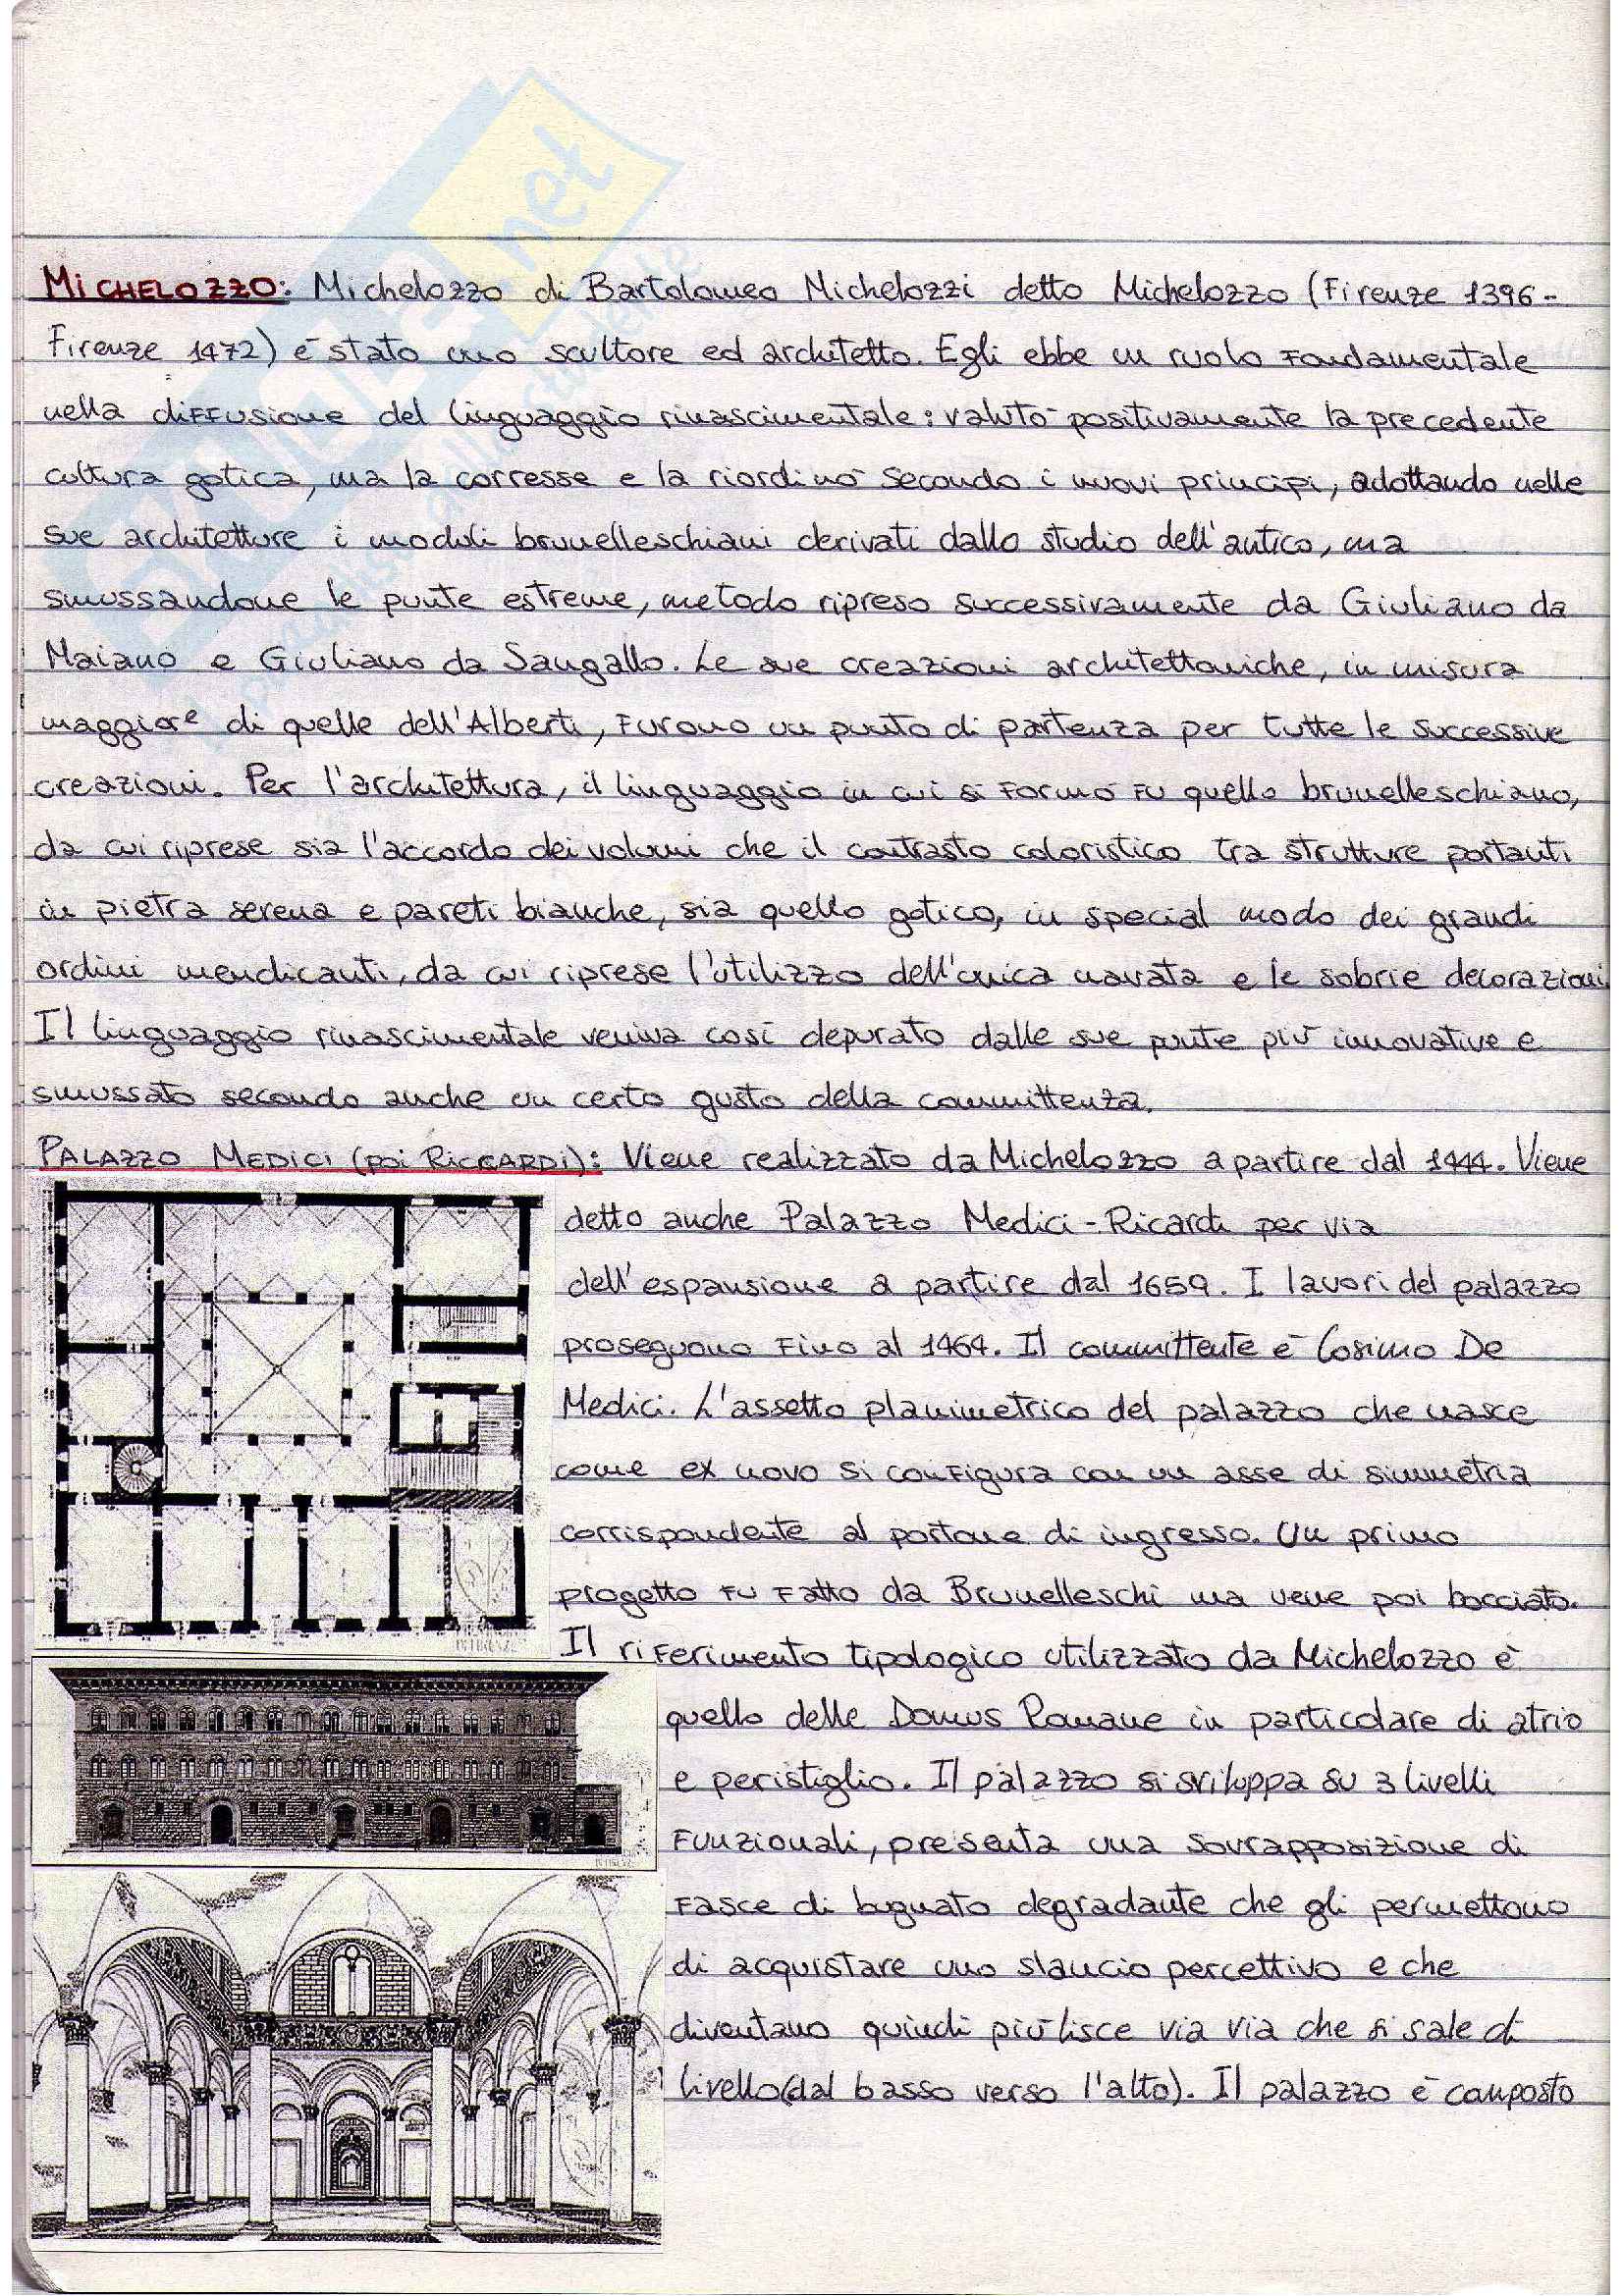 net
MICHELOZZO: Michelozzo di Bartolomeo Michelozzi detto Michelozzo (Firenze 1396-
Firenze 1472) è stato uno scultore ed architetto. Egli ebbe un ruolo fondamentale
nella diffusione del linguaggio rinascimentale: valutò positivamente la precedente
cultura gotica, ma la corresse e la riordinò secondo i nuovi principi, adottando nelle
sue architetture i moduli brunelleschiani derivati dallo studio dell'antico, ma
smussandone le punte estreme, metodo ripreso successivamente da Giuliano da
Maiano e Giuliano da Sangallo. Le sue creazioni architettoniche, in misura
maggiore di quelle dell'Alberti, furono un punto di partenza per tutte le successive
creazioni. Per l'architettura, il linguaggio in cui si formò fu quello brunelleschiano,
da cui riprese sia l'accordo dei volumi che il contrasto coloristico tra strutture portanti
in pietra serena e pareti bianche, sia quello gotico, in special modo dei grandi
ordini mendicanti, da cui riprese l'utilizzo dell'unica navata e le sobrie decorazioni.
Il linguaggio rinascimentale veniva così depurato dalle sue punte più innovative e
smussato secondo anche un certo gusto della committenza.
PALAZZO MEDICI (poi RICCARDI): Viene realizzato da Michelozzo a partire dal 1444. Viene
detto anche Palazzo Medici-Ricardi per via
dell'espansione a partire dal 1659. I lavori del palazzo
proseguono fino al 1464. Il committente è Cosimo De
Medici. L'assetto planimetrico del palazzo che nasce
come ex novo si configura con un asse di simmetria
corrispondente al portone di ingresso. Un primo
progetto fu fatto da Brunelleschi ma vene poi bocciato.
Il riferimento tipologico utilizzato da Michelozzo è
quello delle Domus Romane in particolare di atrio
e peristiglio. Il palazzo si sviluppa su 3 livelli
funzionali, presenta una sovrapposizione di
fasce di bugnato degradante che gli permettono
di acquistare uno slancio percettivo e che
diventano quindi più lisce via via che si sale di
livello (dal basso verso l'alto). Il palazzo è composto